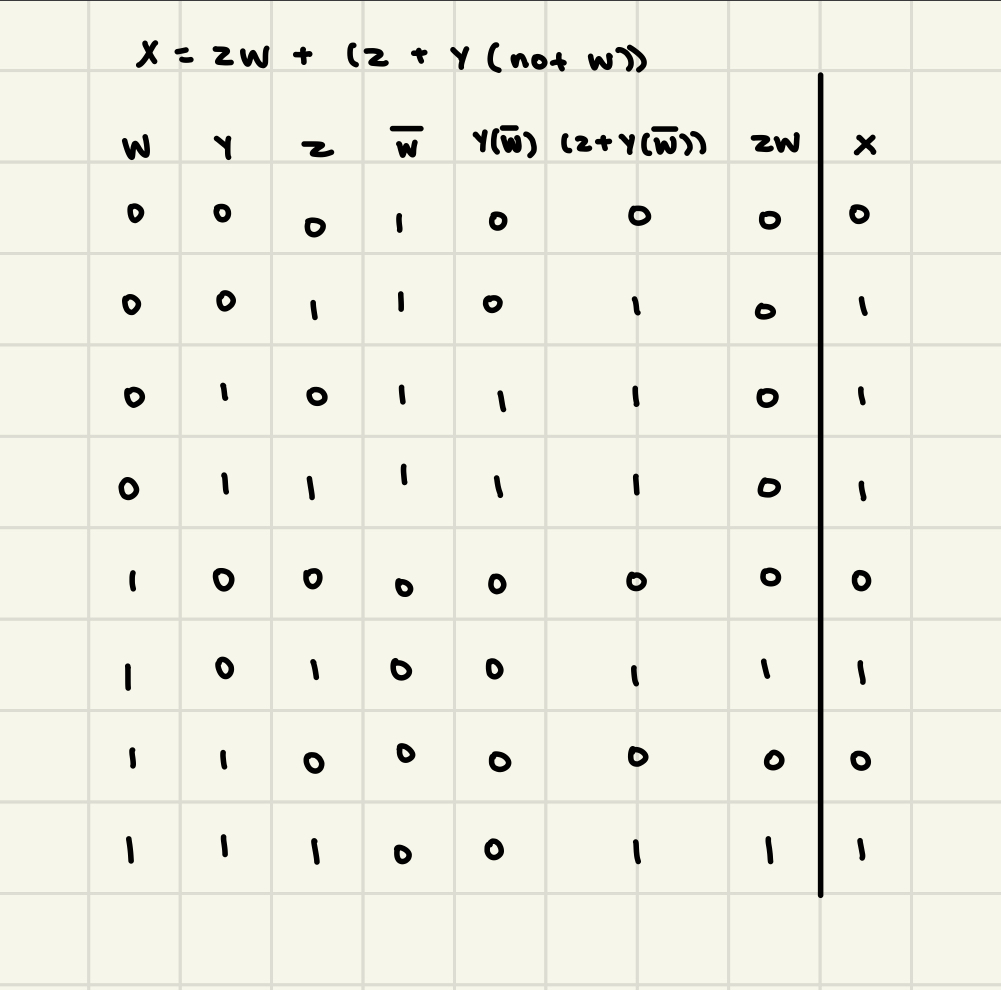 X = ZW + (Z + Y (not W))
W Y Z W̅ Y(W̅) (Z+Y(W̅)) ZW X
0 0 0 1 0 0 0 0
0 0 1 1 0 1 0 1
0 1 0 1 1 1 0 1
0 1 1 1 1 1 0 1
1 0 0 0 0 0 0 0
1 0 1 0 0 1 1 1
1 1 0 0 0 0 0 0
1 1 1 0 0 1 1 1